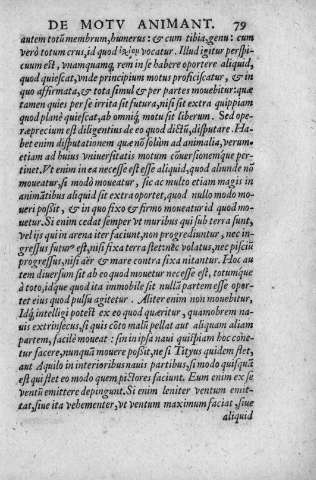 DE MOTV ANIMANT. 79
autem totũ membrum, humerus: & cum tibia, genu: cum
verò totum crus, id quod ἰσχίον vocatur. Illud igitur perspi-
cuum est, vnamquamq; rem in se habere oportere aliquid,
quod quiescat, vnde principium motus proficiscatur, & in
quo affirmata, & tota simul & per partes mouebitur: quæ
tamen quies per se irrita sit futura, nisi sit extra quippiam
quod planè quiescat, ab omniq; motu sit liberum. Sed ope-
ræprecium est diligentius de eo quod dictũ, disputare. Ha-
bet enim disputationem quæ nõ solùm ad animalia, verum-
etiam ad huius vniuersitatis motum cõuersionemque per-
tinet. Vt enim in ea necesse est esse aliquid, quod aliunde nõ
moueatur, si modò moueatur, sic ac multo etiam magis in
animãtibus aliquid sit extra oportet, quod nullo modo mo-
ueri possit, & in quo fixo & firmo moueatur id quod mo-
uetur. Si enim cedat semper vt muribus qui sub terra sunt,
vel iis qui in arena iter faciunt, non progredientur, nec in-
gressus futurus est, nisi fixa terra stet: nec volatus, nec pisciũ
progressus, nisi aër & mare contra fixa nitantur. Hoc au-
tem diuersum sit ab eo quod mouetur necesse est, totumque
à toto, idque quod ita immobile sit nullã partem esse opor-
tet eius quod pulsu agitetur. Aliter enim non mouebitur,
Idq; intelligi potest ex eo quod quæritur, quamobrem na-
uis extrinsecus, si quis cõto malũ pellat aut aliquam aliam
partem, facilè moueat: sin in ipsa naui quispiam hoc cone-
tur facere, nunquã mouere possit, ne si Tityus quidem stet,
aut Aquilo in interioribus nauis partibus, si modo quisquã
est qui flet eo modo quem pictores faciunt. Eum enim ex se
ventũ emittere depingunt. Si enim leniter ventum emit-
tat, siue ita vehementer, vt ventum maximum faciat, siue
aliquid